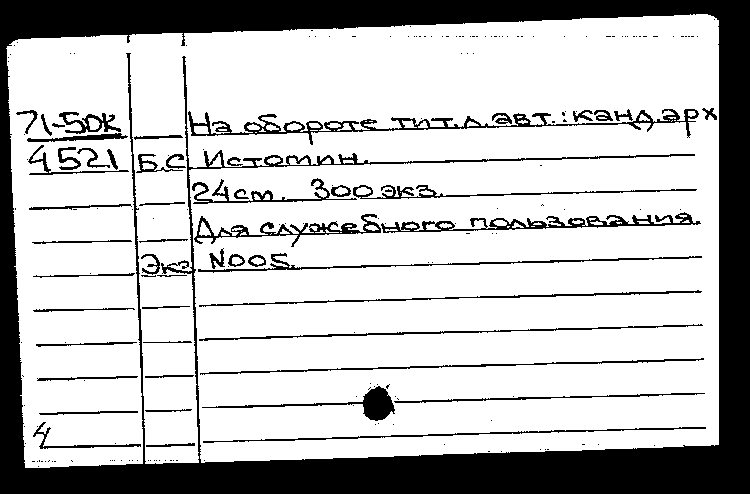 71-5DK На обороте тит.л.авт.:канд.арх
4521 Б.С Истомин.
24cm. 300 экз.
Для служебного пользования.
Экз N005.
4